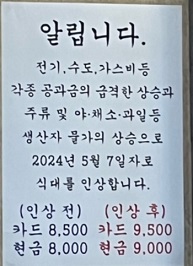 알립니다.
전기,수도,가스비등
각종 공과금의 급격한 상승과
주류 및 야·채소·과일등
생산자 물가의 상승으로
2024년 5월 7일자로
식대를 인상합니다.
(인상 전) (인상 후)
카드 8,500 카드 9,500
현금 8,000 현금 9,000